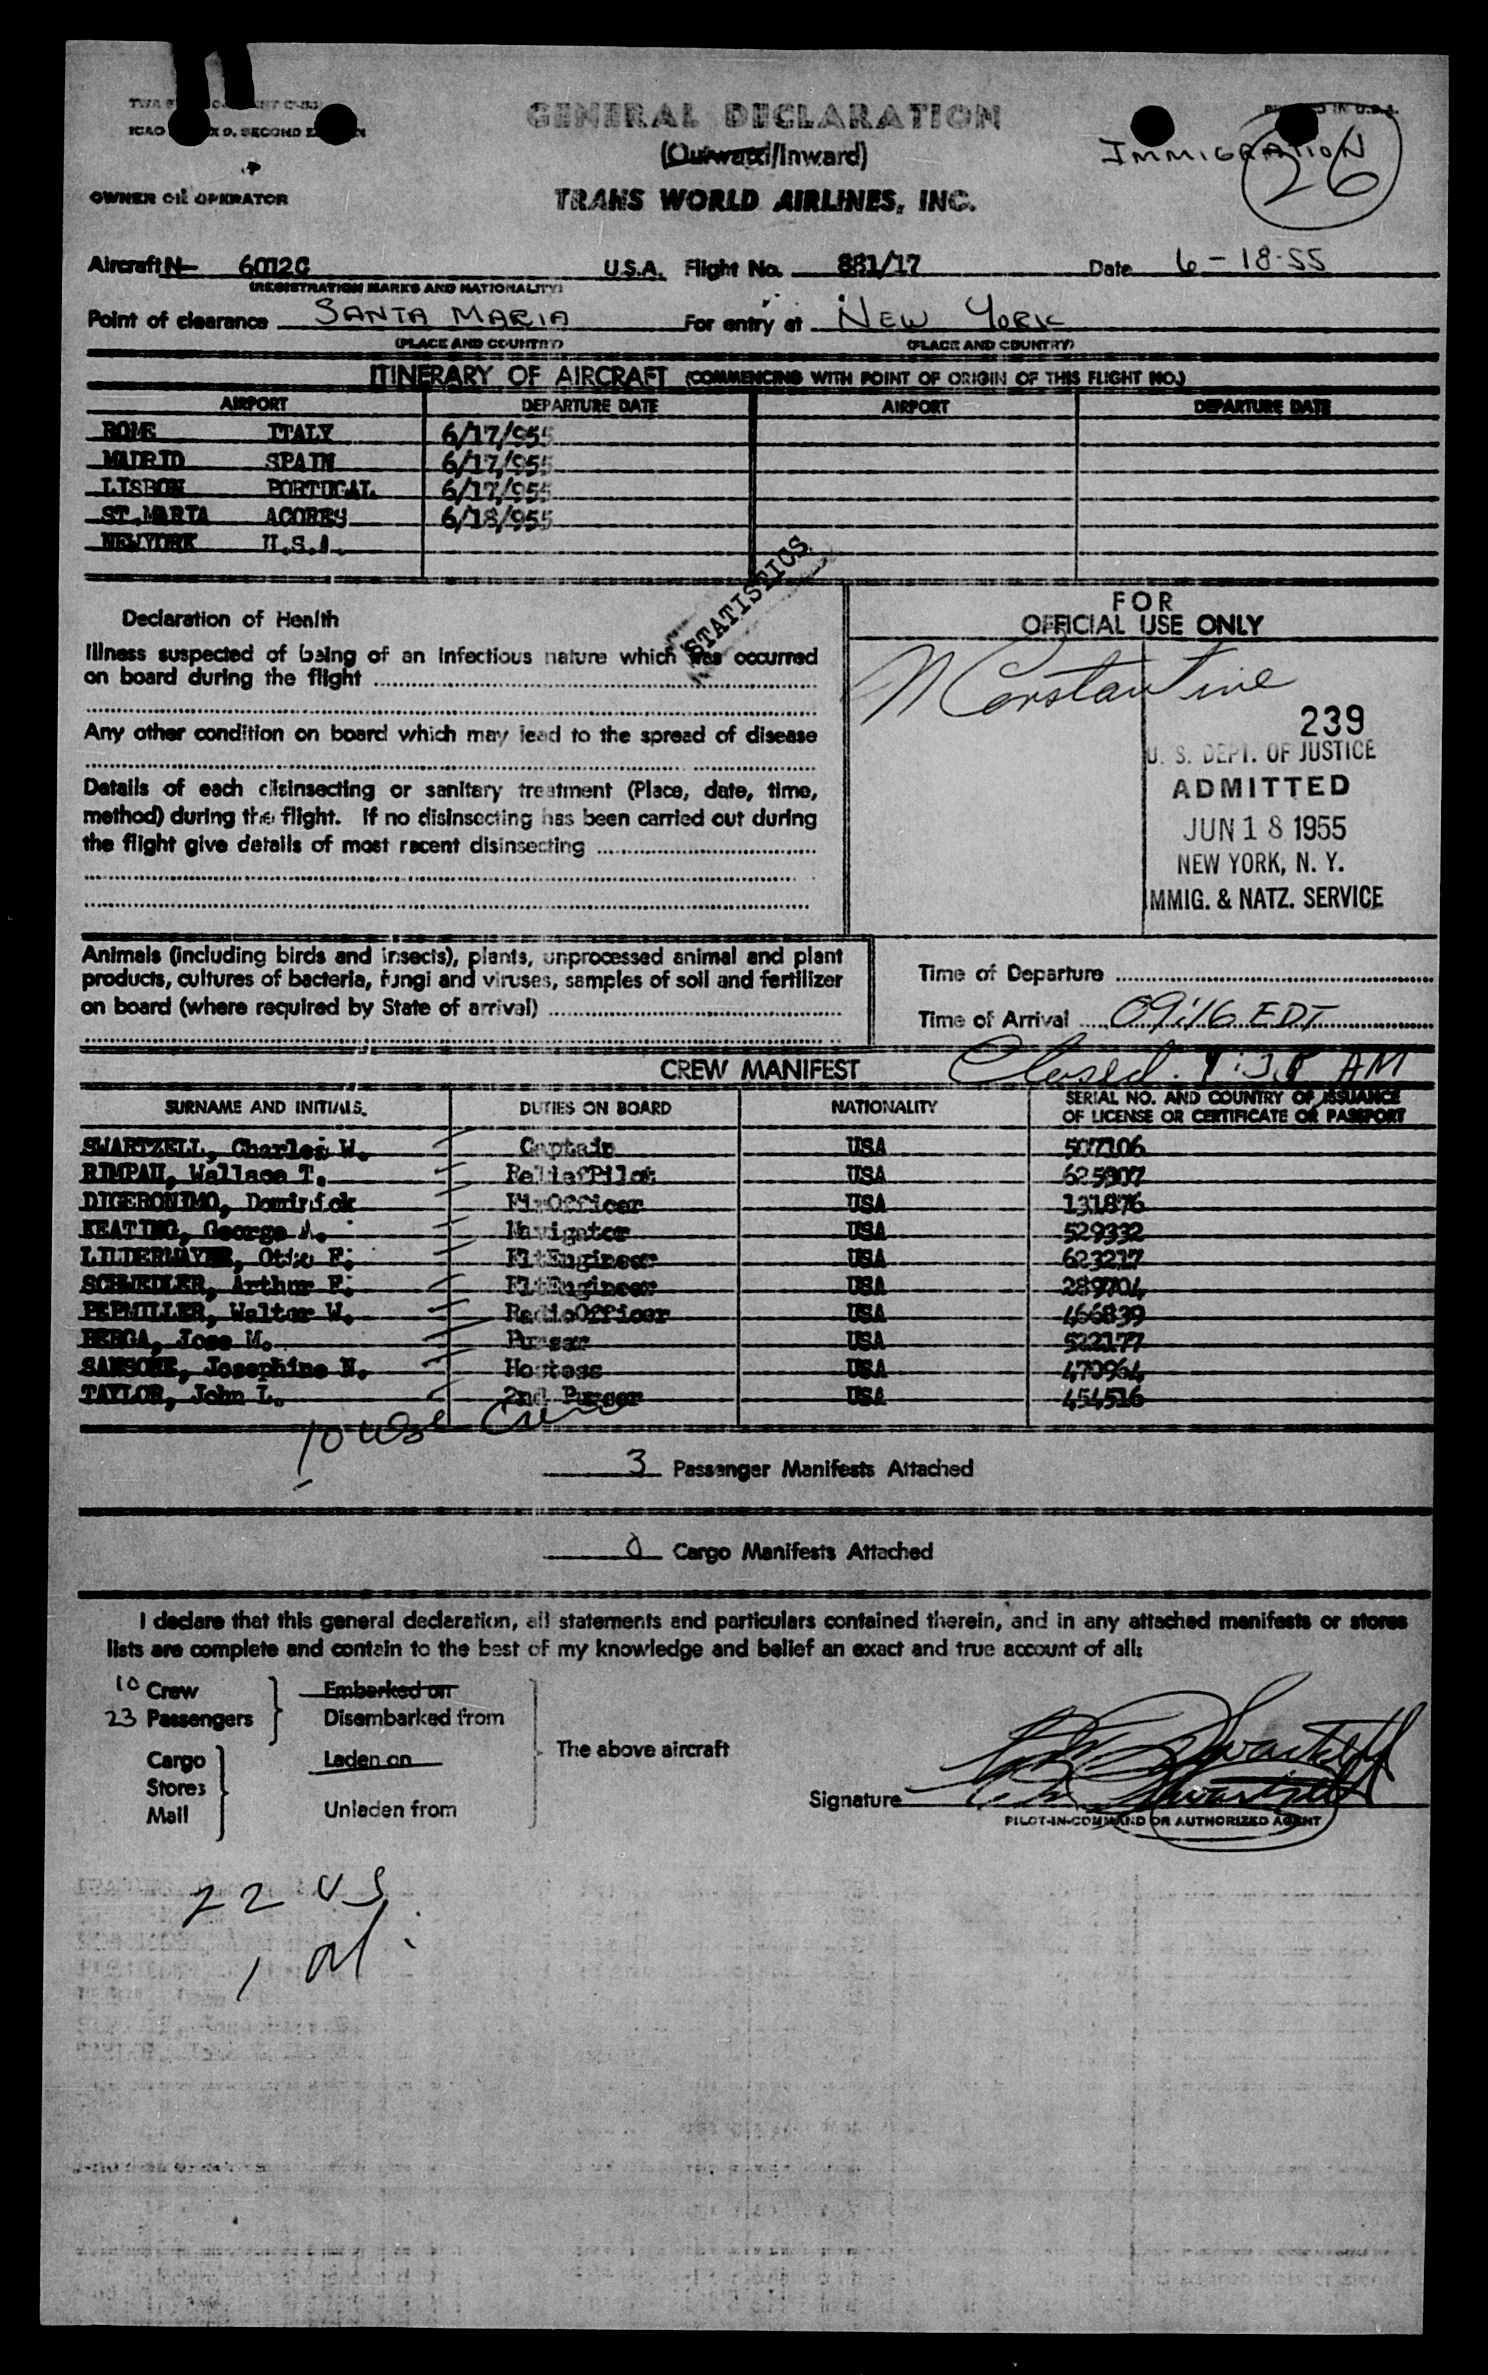 GENERAL DECLARATION
(Outward/Inward)
IMMIGRATION
26
OWNER OR OPERATOR
TRANS WORLD AIRLINES, INC.
Aircraft N- 6012C U.S.A. Flight No. 881/17 Date 6-18-55
(REGISTRATION MARKS AND NATIONALITY)
Point of clearance SANTA MARIA For entry at NEW YORK
(PLACE AND COUNTRY) (PLACE AND COUNTRY)
ITINERARY OF AIRCRAFT (COMMENCING WITH POINT OF ORIGIN OF THIS FLIGHT NO.)
AIRPORT DEPARTURE DATE AIRPORT DEPARTURE DATE
ROME ITALY 6/17/955
MADRID SPAIN 6/17/955
LISBON PORTUGAL 6/17/955
ST.MARIA ACORES 6/18/955
NEWYORK U.S.A.
STATISTICS
Declaration of Health
Illness suspected of being of an infectious nature which has occurred
on board during the flight
Any other condition on board which may lead to the spread of disease
Details of each disinsecting or sanitary treatment (Place, date, time,
method) during the flight. If no disinsecting has been carried out during
the flight give details of most recent disinsecting
FOR
OFFICIAL USE ONLY
Constantine
239
U. S. DEPT. OF JUSTICE
ADMITTED
JUN 18 1955
NEW YORK, N. Y.
IMMIG. & NATZ. SERVICE
Animals (including birds and insects), plants, unprocessed animal and plant
products, cultures of bacteria, fungi and viruses, samples of soil and fertilizer
on board (where required by State of arrival)
Time of Departure
Time of Arrival 09:16 EDT
Closed AM
CREW MANIFEST
SURNAME AND INITIALS. DUTIES ON BOARD NATIONALITY SERIAL NO. AND COUNTRY OF ISSUANCE
OF LICENSE OR CERTIFICATE OR PASSPORT
SWARTZELL, Charles W. Captain USA 507106
RIMPAU, Wallace T. ReliefPilot USA 625907
DIGERONIMO, Dominick USA 131876
KEATING, George A. Navigator USA 529332
Otto F. FltEngineer USA 623217
SCHWEDLER, Arthur F. FltEngineer USA 289704
PEPMILLER, Walter W. RadioOfficer USA 466839
BERGA, Jose M. Purser USA 522177
SANSONE, Josephine N. Hostess USA 470964
TAYLOR, John L. 2nd Purser USA 454516
10 USC Crew
3 Passenger Manifests Attached
0 Cargo Manifests Attached
I declare that this general declaration, all statements and particulars contained therein, and in any attached manifests or stores
lists are complete and contain to the best of my knowledge and belief an exact and true account of all:
10 Crew Embarked on
23 Passengers Disembarked from
The above aircraft
Cargo Laden on
Stores
Mail Unladen from
Signature Swartzell
PILOT-IN-COMMAND OR AUTHORIZED AGENT
22 US
1 al.